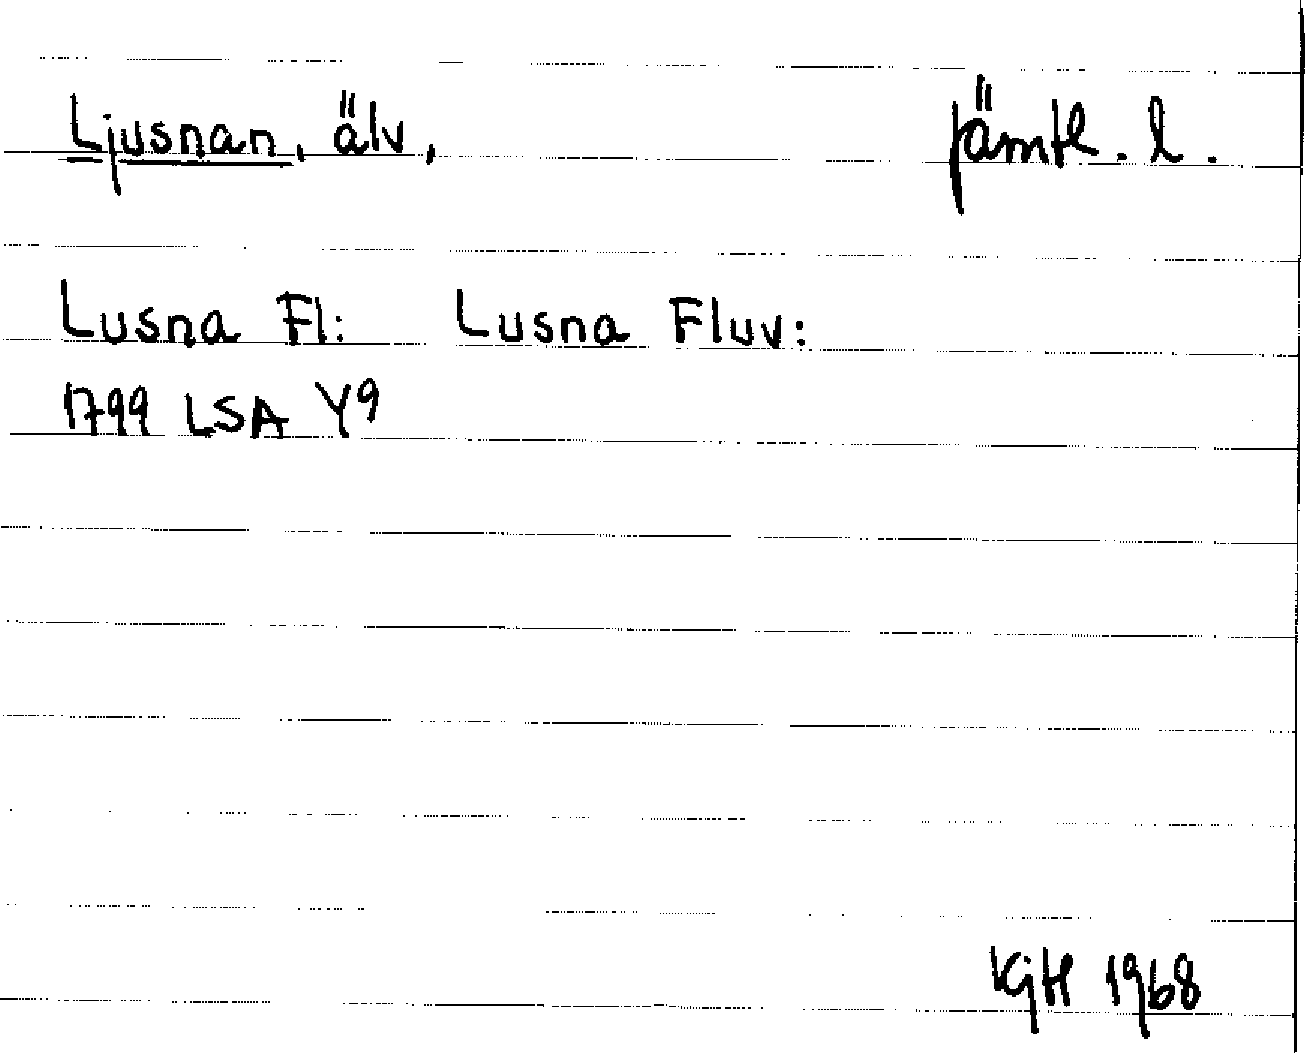 Ljusnan, älv, Jämtl. l.
Lusna Fl: Lusna Fluv:
1799 LSA Y9
KGH 1968